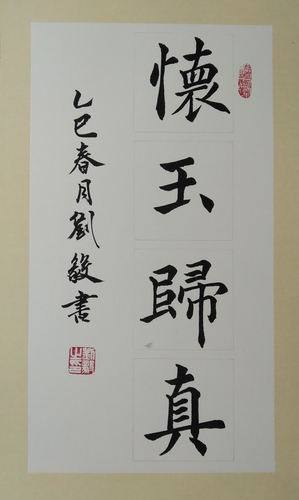 懷玉歸真
乙巳春月劉毅書